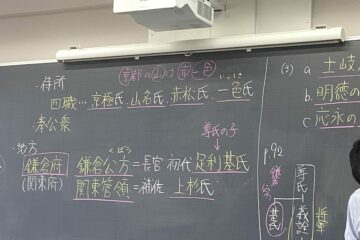 京都の山は赤一色
・侍所
四職…京極氏、山名氏、赤松氏、一色氏
いっしき
奉公衆
尊氏の子
・地方
くぼう
鎌倉府 鎌倉公方=長官 初代 足利基氏
(関東府) 関東管領=補佐 上杉氏
(3) a 土岐
b. 明徳の
c 応永の
p.92
尊氏
義詮
基氏
鎌倉
将軍